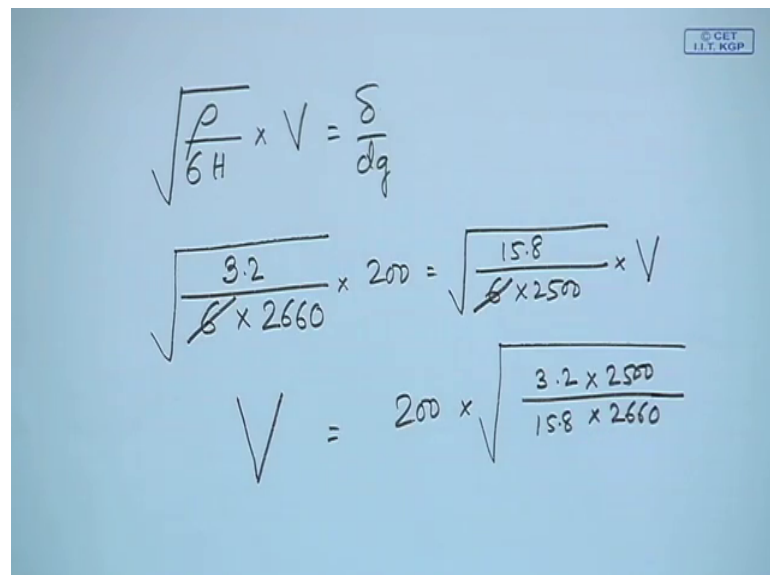 © CET
I.I.T. KGP
√(ρ/6H) × V = δ/dg
√(3.2/(6 × 2660)) × 200 = √(15.8/(6 × 2500)) × V
V = 200 × √((3.2 × 2500)/(15.8 × 2660))